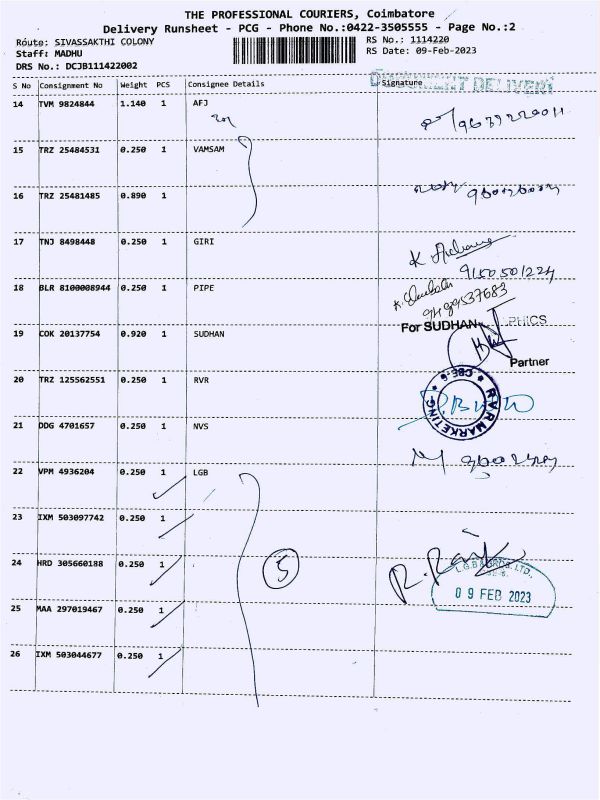 THE PROFESSIONAL COURIERS, Coimbatore
Delivery Runsheet - PCG - Phone No.:0422-3505555 - Page No.:2
Route: SIVASSAKTHI COLONY RS No.: 1114220
Staff: MADHU RS Date: 09-Feb-2023
DRS No.: DCJB111422002
DOCUMENT DELIVERY
S No Consignment No Weight PCS Consignee Details Signature
14 TVM 9824844 1.140 1 AFJ
15 TRZ 25484531 0.250 1 VAMSAM
16 TRZ 25481485 0.890 1
17 TNJ 8498448 0.250 1 GIRI
K
9150501224
18 BLR 8100008944 0.250 1 PIPE
9489537683
For SUDHAN PHICS
19 COK 20137754 0.920 1 SUDHAN
Partner
20 TRZ 125562551 0.250 1 RVR
RVR MARKETING CBE-6
21 DDG 4701657 0.250 1 NVS
22 VPM 4936204 0.250 1 LGB
23 IXM 503097742 0.250 1
24 HRD 305660188 0.250 1 5
R.
09 FEB 2023
25 MAA 297019467 0.250 1
26 IXM 503044677 0.250 1